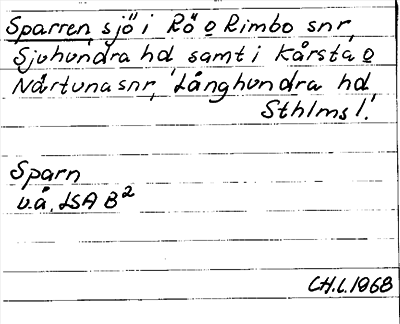 Sparren, sjö i Rö o Rimbo snr,
Sjuhundra hd samt i Kårsta o
Närtuna snr, Långhundra hd,
Sthlms l.
Sparn
u.å. LSA B²
C.H.L. 1968